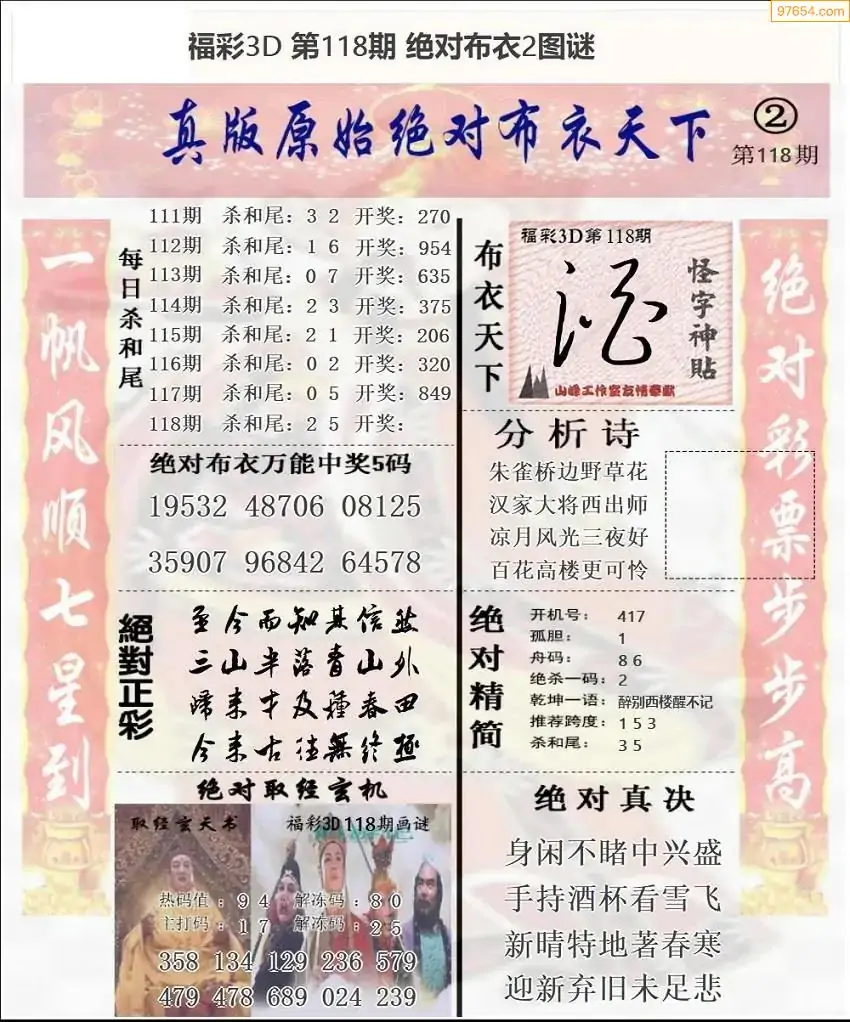 97654.com
福彩3D 第118期 绝对布衣2图谜
真版原始绝对布衣天下
②
第118期
一帆风顺七星到
每日杀和尾
111期 杀和尾：3 2 开奖：270
112期 杀和尾：1 6 开奖：954
113期 杀和尾：0 7 开奖：635
114期 杀和尾：2 3 开奖：375
115期 杀和尾：2 1 开奖：206
116期 杀和尾：0 2 开奖：320
117期 杀和尾：0 5 开奖：849
118期 杀和尾：2 5 开奖：
绝对布衣万能中奖5码
19532 48706 08125
35907 96842 64578
絕對正彩
至今而知其信然
三山半落青山外
歸来才及種春田
今来古往無终極
绝对取经玄机
取经玄天书
福彩3D118期画谜
热码值：9 4 解冻码：8 0
主打码：1 7 解冻码：2 5
358 134 129 236 579
479 478 689 024 239
布衣天下
福彩3D第118期
怪字神贴
山峰工作室友情奉献
分析诗
朱雀桥边野草花
汉家大将西出师
凉月风光三夜好
百花高楼更可怜
绝对精简
开机号： 417
孤胆： 1
舟码： 8 6
绝杀一码：2
乾坤一语：醉别西楼醒不记
推荐跨度：1 5 3
杀和尾： 3 5
绝对真决
身闲不睹中兴盛
手持酒杯看雪飞
新晴特地著春寒
迎新弃旧未足悲
绝对彩票步步高